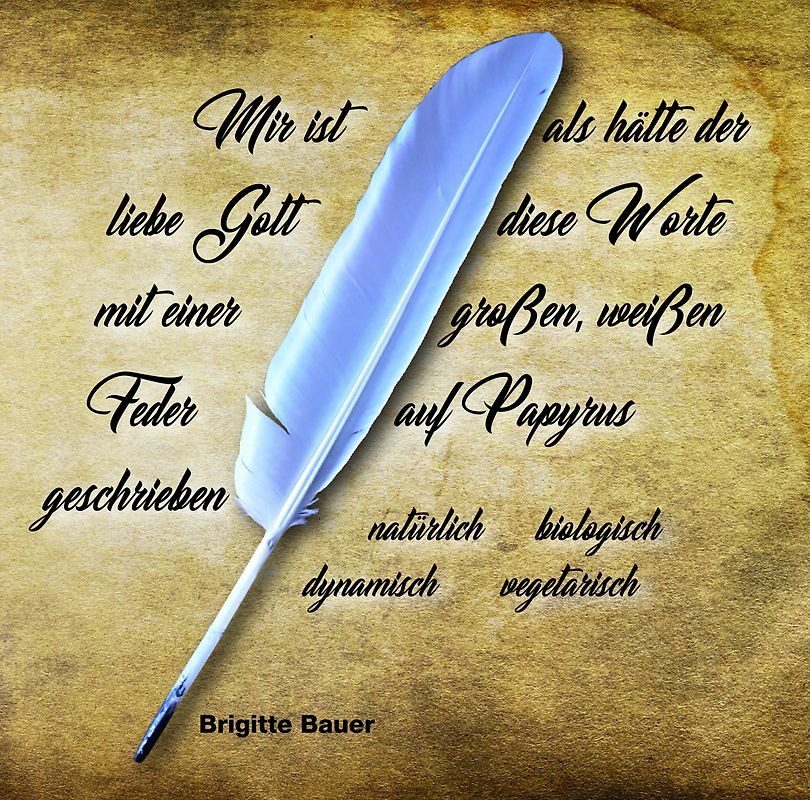 Mir ist als hätte der
liebe Gott diese Worte
mit einer großen, weißen
Feder auf Papyrus
geschrieben
natürlich biologisch
dynamisch vegetarisch
Brigitte Bauer